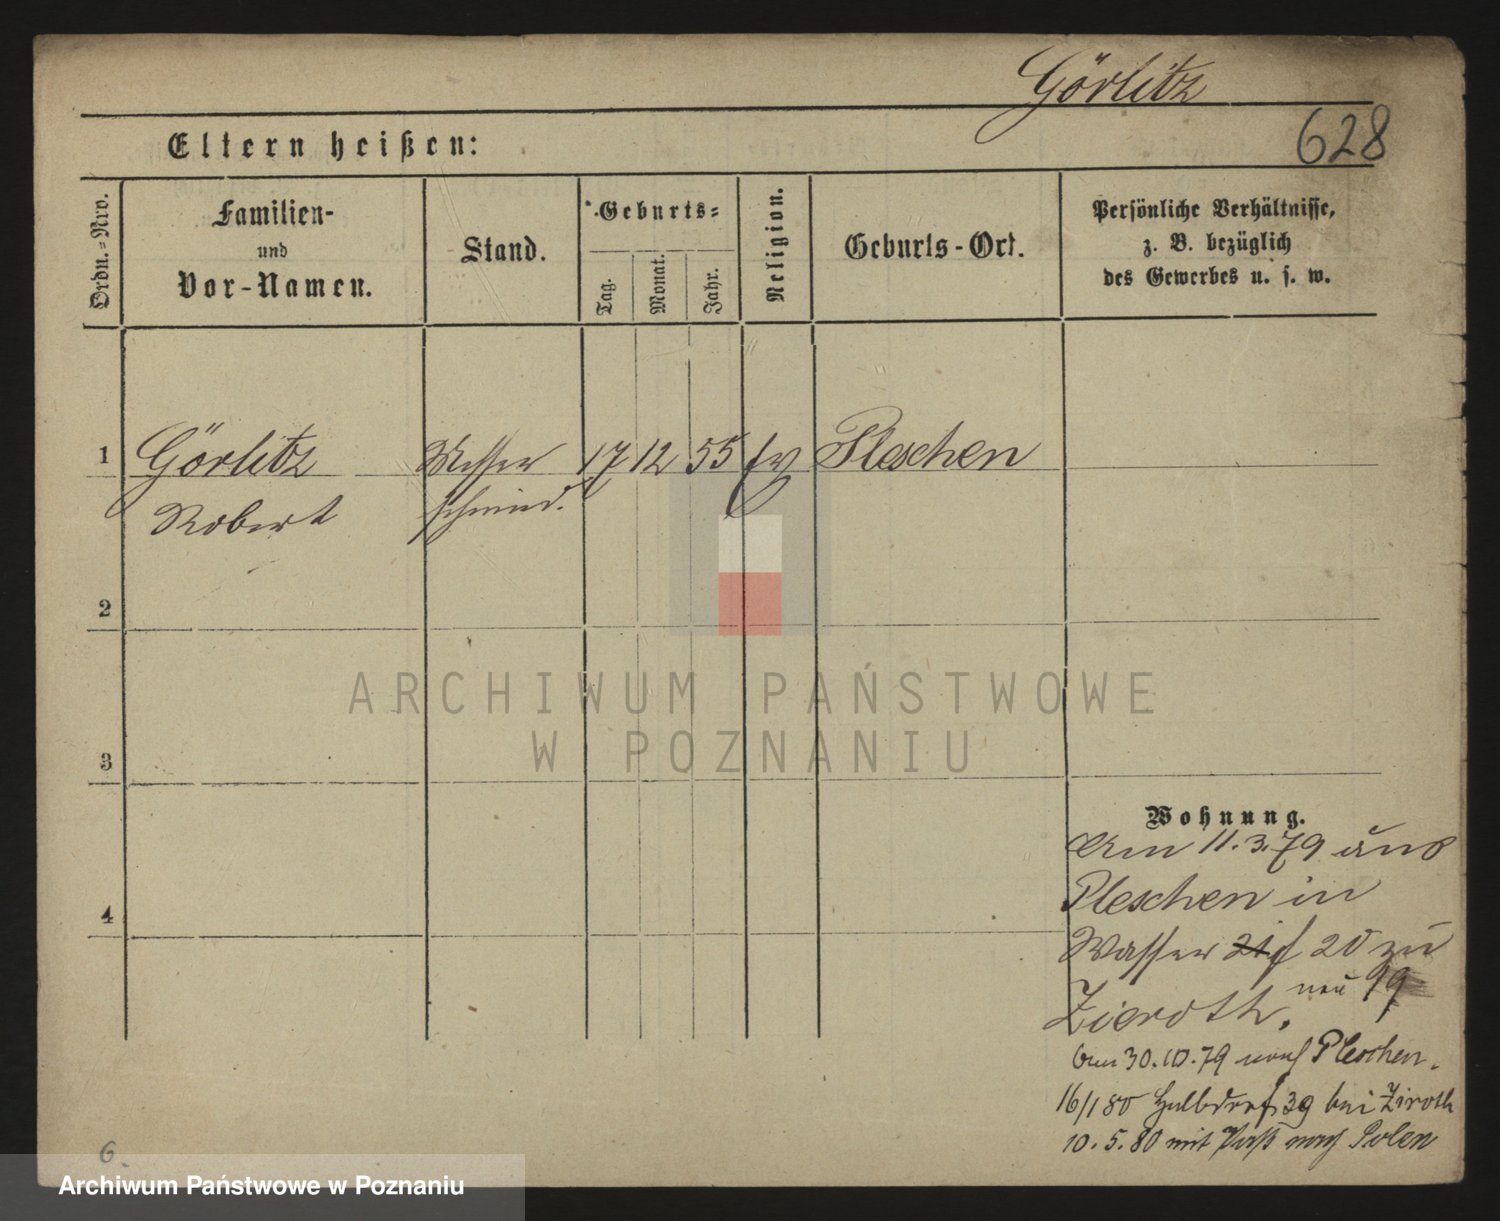 Görlitz
628
Eltern heißen:
Ordn.-Nro.
Familien-
und
Vor-Namen.
Stand.
Geburts=
Tag.
Monat.
Jahr.
Religion.
Geburts-Ort.
Persönliche Verhältnisse,
z. B. bezüglich
des Gewerbes u. s. w.
1 Görlitz Messer 17 12 55 ev Pleschen
Robert schmied.
2
3
4
Wohnung.
Am 11.3.79 aus
Pleschen in
Wasser 21 f 20 zu
neu 99
Zieroth.
Am 30.10.79 nach Pleschen.
16/1 80 Halbdorf 39 bei Ziroth
10.5.80 mit Paß nach Polen
6.
ARCHIWUM PAŃSTWOWE
W POZNANIU
Archiwum Państwowe w Poznaniu